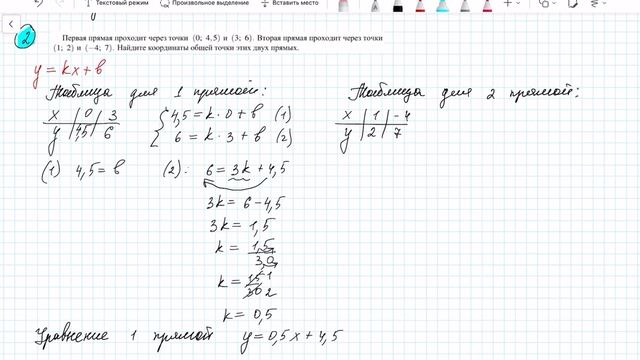 Текстовый режим Произвольное выделение Вставить место
2 Первая прямая проходит через точки (0; 4,5) и (3; 6). Вторая прямая проходит через точки
(1; 2) и (−4; 7). Найдите координаты общей точки этих двух прямых.
y = kx + b
Таблица для 1 прямой:
x | 0 | 3
y | 4,5 | 6
{ 4,5 = k · 0 + b (1)
6 = k · 3 + b (2)
(1) 4,5 = b
(2): 6 = 3k + 4,5
3k = 6 − 4,5
3k = 1,5
k = 1,5/3,0
k = 15 1/30 2
k = 0,5
Уравнение 1 прямой y = 0,5x + 4,5
Таблица для 2 прямой:
x | 1 | −4
y | 2 | 7